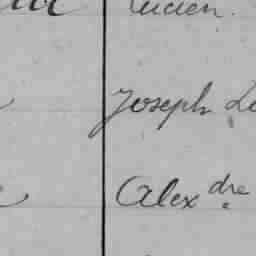 Lucien.
Joseph
Alexdre